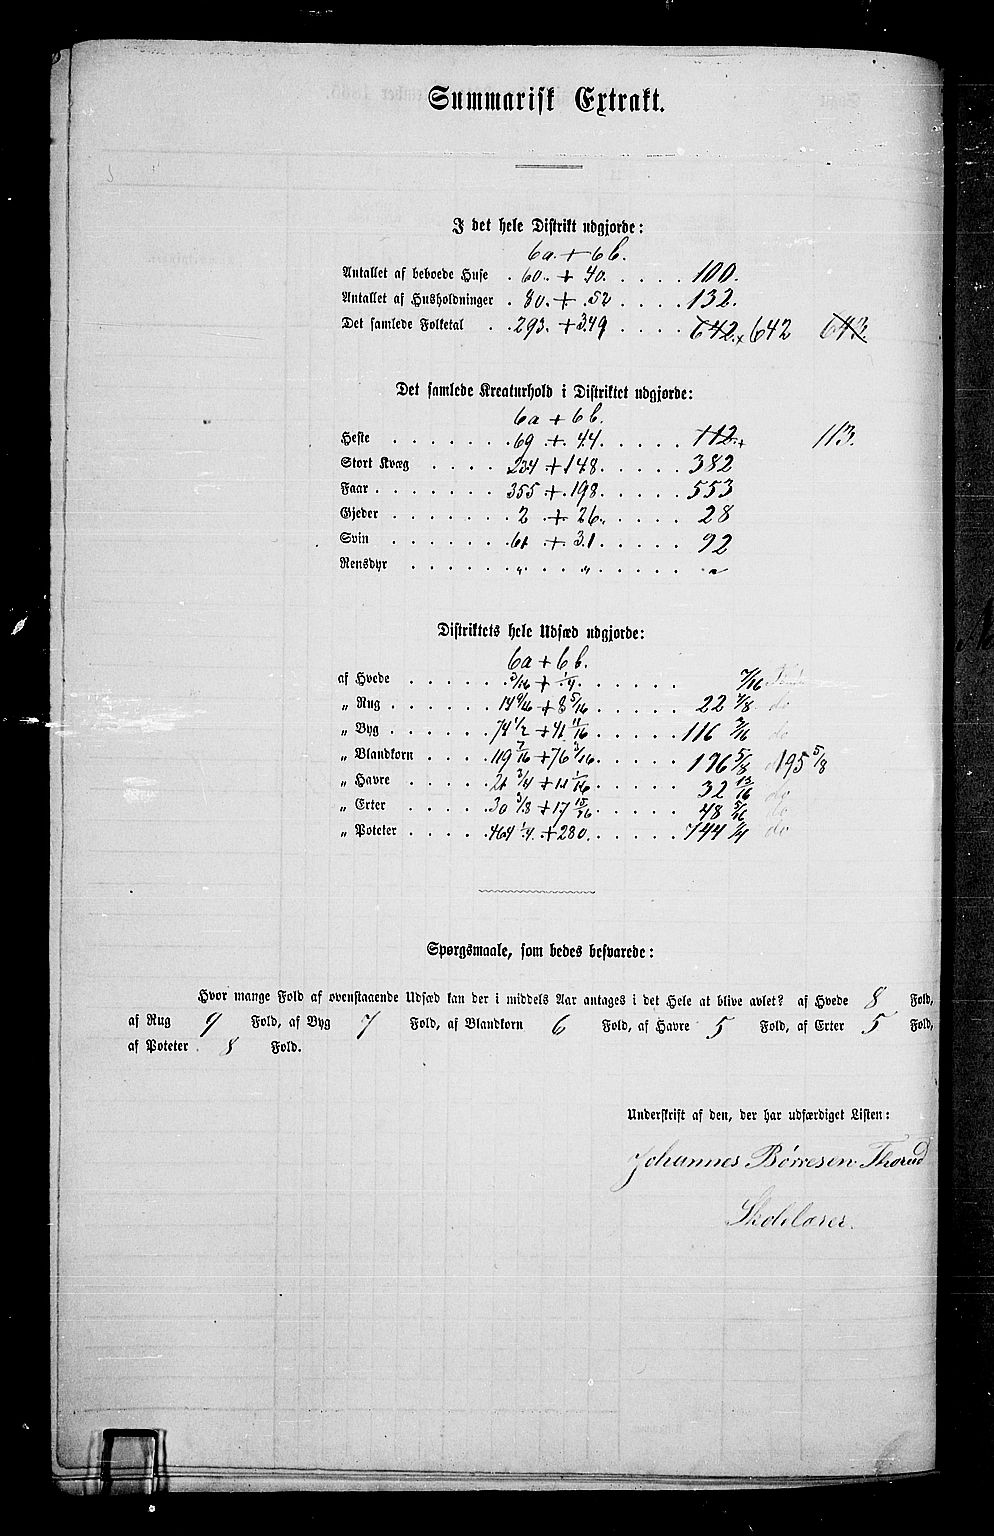 Summarisk Extrakt.
I det hele Distrikt udgjorde:
6a. + 6b.
Antallet af beboede Huse . 60. + 40. . . . . 100.
Antallet af Husholdninger . 80. + . 52 . . . . 132.
Det samlede Folketal . . 293. + 349 . . . . 642. x 642 643.
Det samlede Kreaturhold i Distriktet udgjorde:
6a + 6b.
Heste . . . . . . . 69 . + . 44. . . . . 112. + 113.
Stort Kvæg . . . . 234 . + 148. . . . . 382
Faar . . . . . . . 355 . + . 198. . . . . 553
Gjeder . . . . . . 2 . + . 26. . . . . 28
Svin . . . . . . . 61 . + . 31 . . . . . 92
Rensdyr . . . . . . „ . . . „ . . . . . „
Distriktets hele Udsæd udgjorde:
6a + 6b.
af Hvede . . . . . 3/16 + 1/4. . . . . . 7/16
„ Rug . . . . . . 14 9/16 + 8 5/16 . . . . . 22 7/8 do
„ Byg . . . . . . 74 1/2 + 41 11/16 . . . . 116 3/16 do
„ Blandkorn . . . . 119 7/16 + 76 3/16 . . . . . 196 5/8 195 5/8
„ Havre . . . . . 21 3/4 + 11 1/16 . . . . . 32 13/16 do
„ Erter . . . . . 30 3/8 + 17 15/16 . . . . . 48 5/16 do
„ Poteter . . . . . 464 1/4. + 280. . . . . 744 1/4 do
Spørgsmaale, som bedes besvarede:
Hvor mange Fold af ovenstaaende Udsæd kan der i middels Aar antages i det Hele at blive avlet? af Hvede 8 Fold,
af Rug 9 Fold, af Byg 7 Fold, af Blandkorn 6 Fold, af Havre 5 Fold, af Erter 5 Fold,
af Poteter 8 Fold.
Underskrift af den, der har udfærdiget Listen:
Johannes Børresen Thorud
Skolelærer.